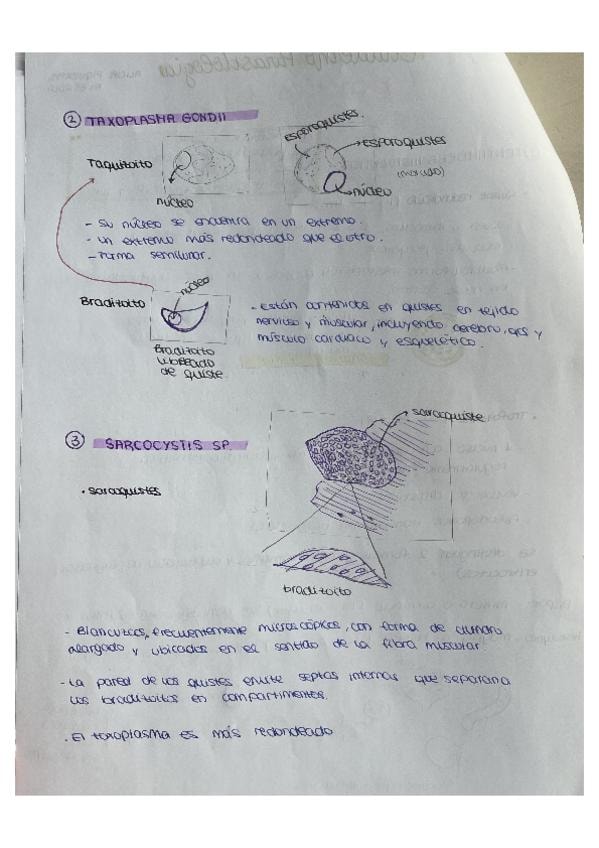 ② TAXOPLASMA GONDII
Taquitoito
núcleo
Esporoquistes
Esporoquistes
(morado)
núcleo
- Su núcleo se encuentra en un extremo.
- un extremo más redondeado que el otro.
- Forma semilunar.
Braditoito
núcleo
Braditoito
liberado
de quiste.
- Están contenidos en quistes en tejido
nervioso y muscular, incluyendo cerebro, ojos y
músculo cardiaco y esquelético.
③ SARCOCYSTIS SP.
• sarcoquistes
sarcoquiste
braditoito
- Blancuzcos, frecuentemente microscópicos, con forma de cilindro
alargado y ubicados en el sentido de la fibra muscular
- La pared de los quistes emite septas internas que separana
los braditoitos en compartimentos.
. El toxoplasma es más redondeado